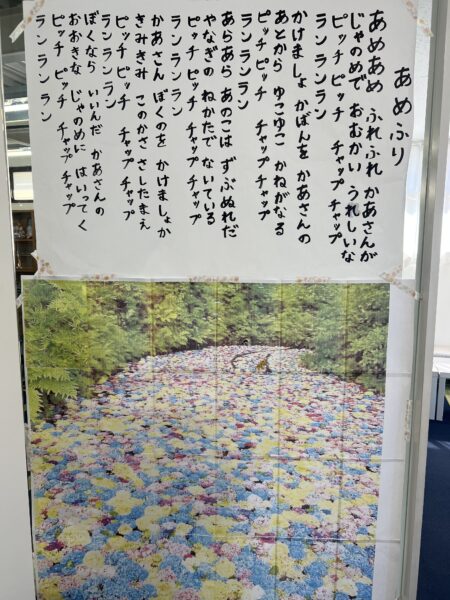 あめふり
あめあめ ふれふれ かあさんが
じゃのめで おむかい うれしいな
ピッチ ピッチ チャップ チャップ
ラン ラン ラン
かけましょ かばんを かあさんの
あとから ゆこゆこ かねがなる
ピッチ ピッチ チャップ チャップ
ラン ラン ラン
あらあら あのこは ずぶぬれだ
やなぎの ねかたで ないている
ピッチ ピッチ チャップ チャップ
ラン ラン ラン
かあさん ぼくのを かけましょか
きみきみ このかさ さしたまえ
ピッチ ピッチ チャップ チャップ
ラン ラン ラン
ぼくなら いいんだ かあさんの
おおきな じゃのめに はいってく
ピッチ ピッチ チャップ チャップ
ラン ラン ラン